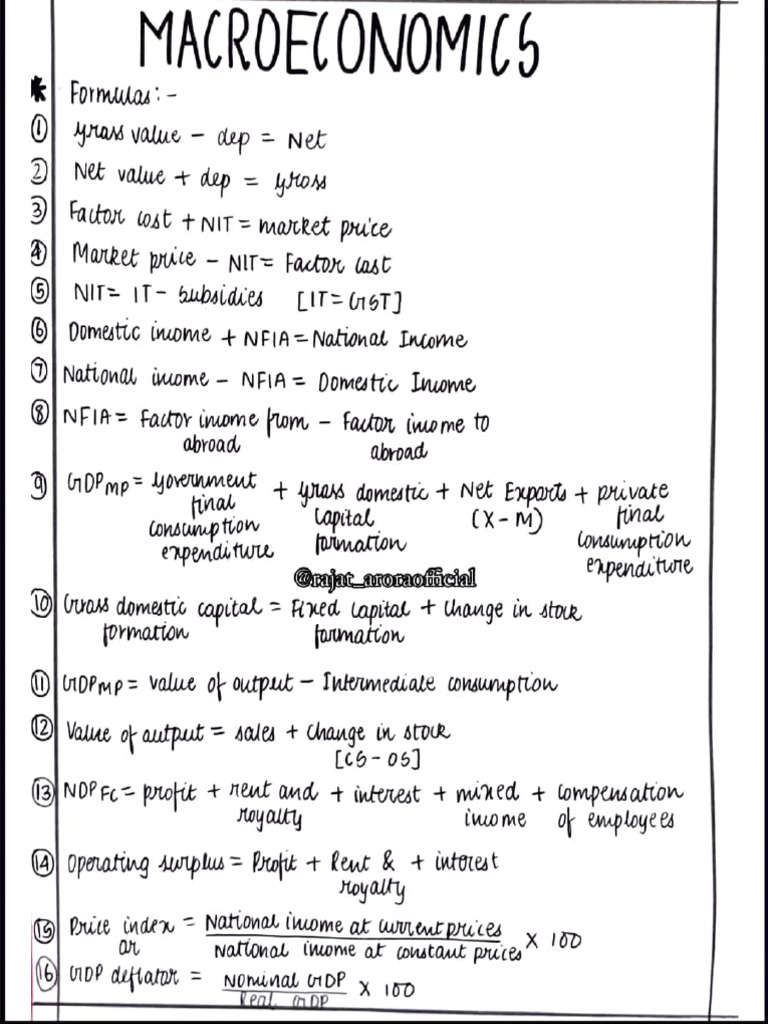 MACROECONOMICS
* Formulas:-
① Gross value - dep = Net
② Net value + dep = Gross
③ Factor cost + NIT = market price
④ Market price - NIT = Factor cost
⑤ NIT = IT - Subsidies [IT = GST]
⑥ Domestic income + NFIA = National Income
⑦ National income - NFIA = Domestic Income
⑧ NFIA = Factor income from - factor income to
abroad abroad
⑨ GDPMP = Government + Gross domestic + Net Exports + private
final capital (X-M) final
consumption formation consumption
expenditure expenditure
@rajat_aroraofficial
⑩ Gross domestic capital = Fixed capital + change in stock
formation formation
⑪ GDPMP = value of output - Intermediate consumption
⑫ Value of output = sales + change in stock
[CS - OS]
⑬ NDPFC = profit + rent and + interest + mixed + compensation
royalty income of employees
⑭ Operating surplus = Profit + Rent & + interest
royalty
⑮ Price index = National income at current prices × 100
or National income at constant prices
⑯ GDP deflator = Nominal GDP × 100
Real GDP